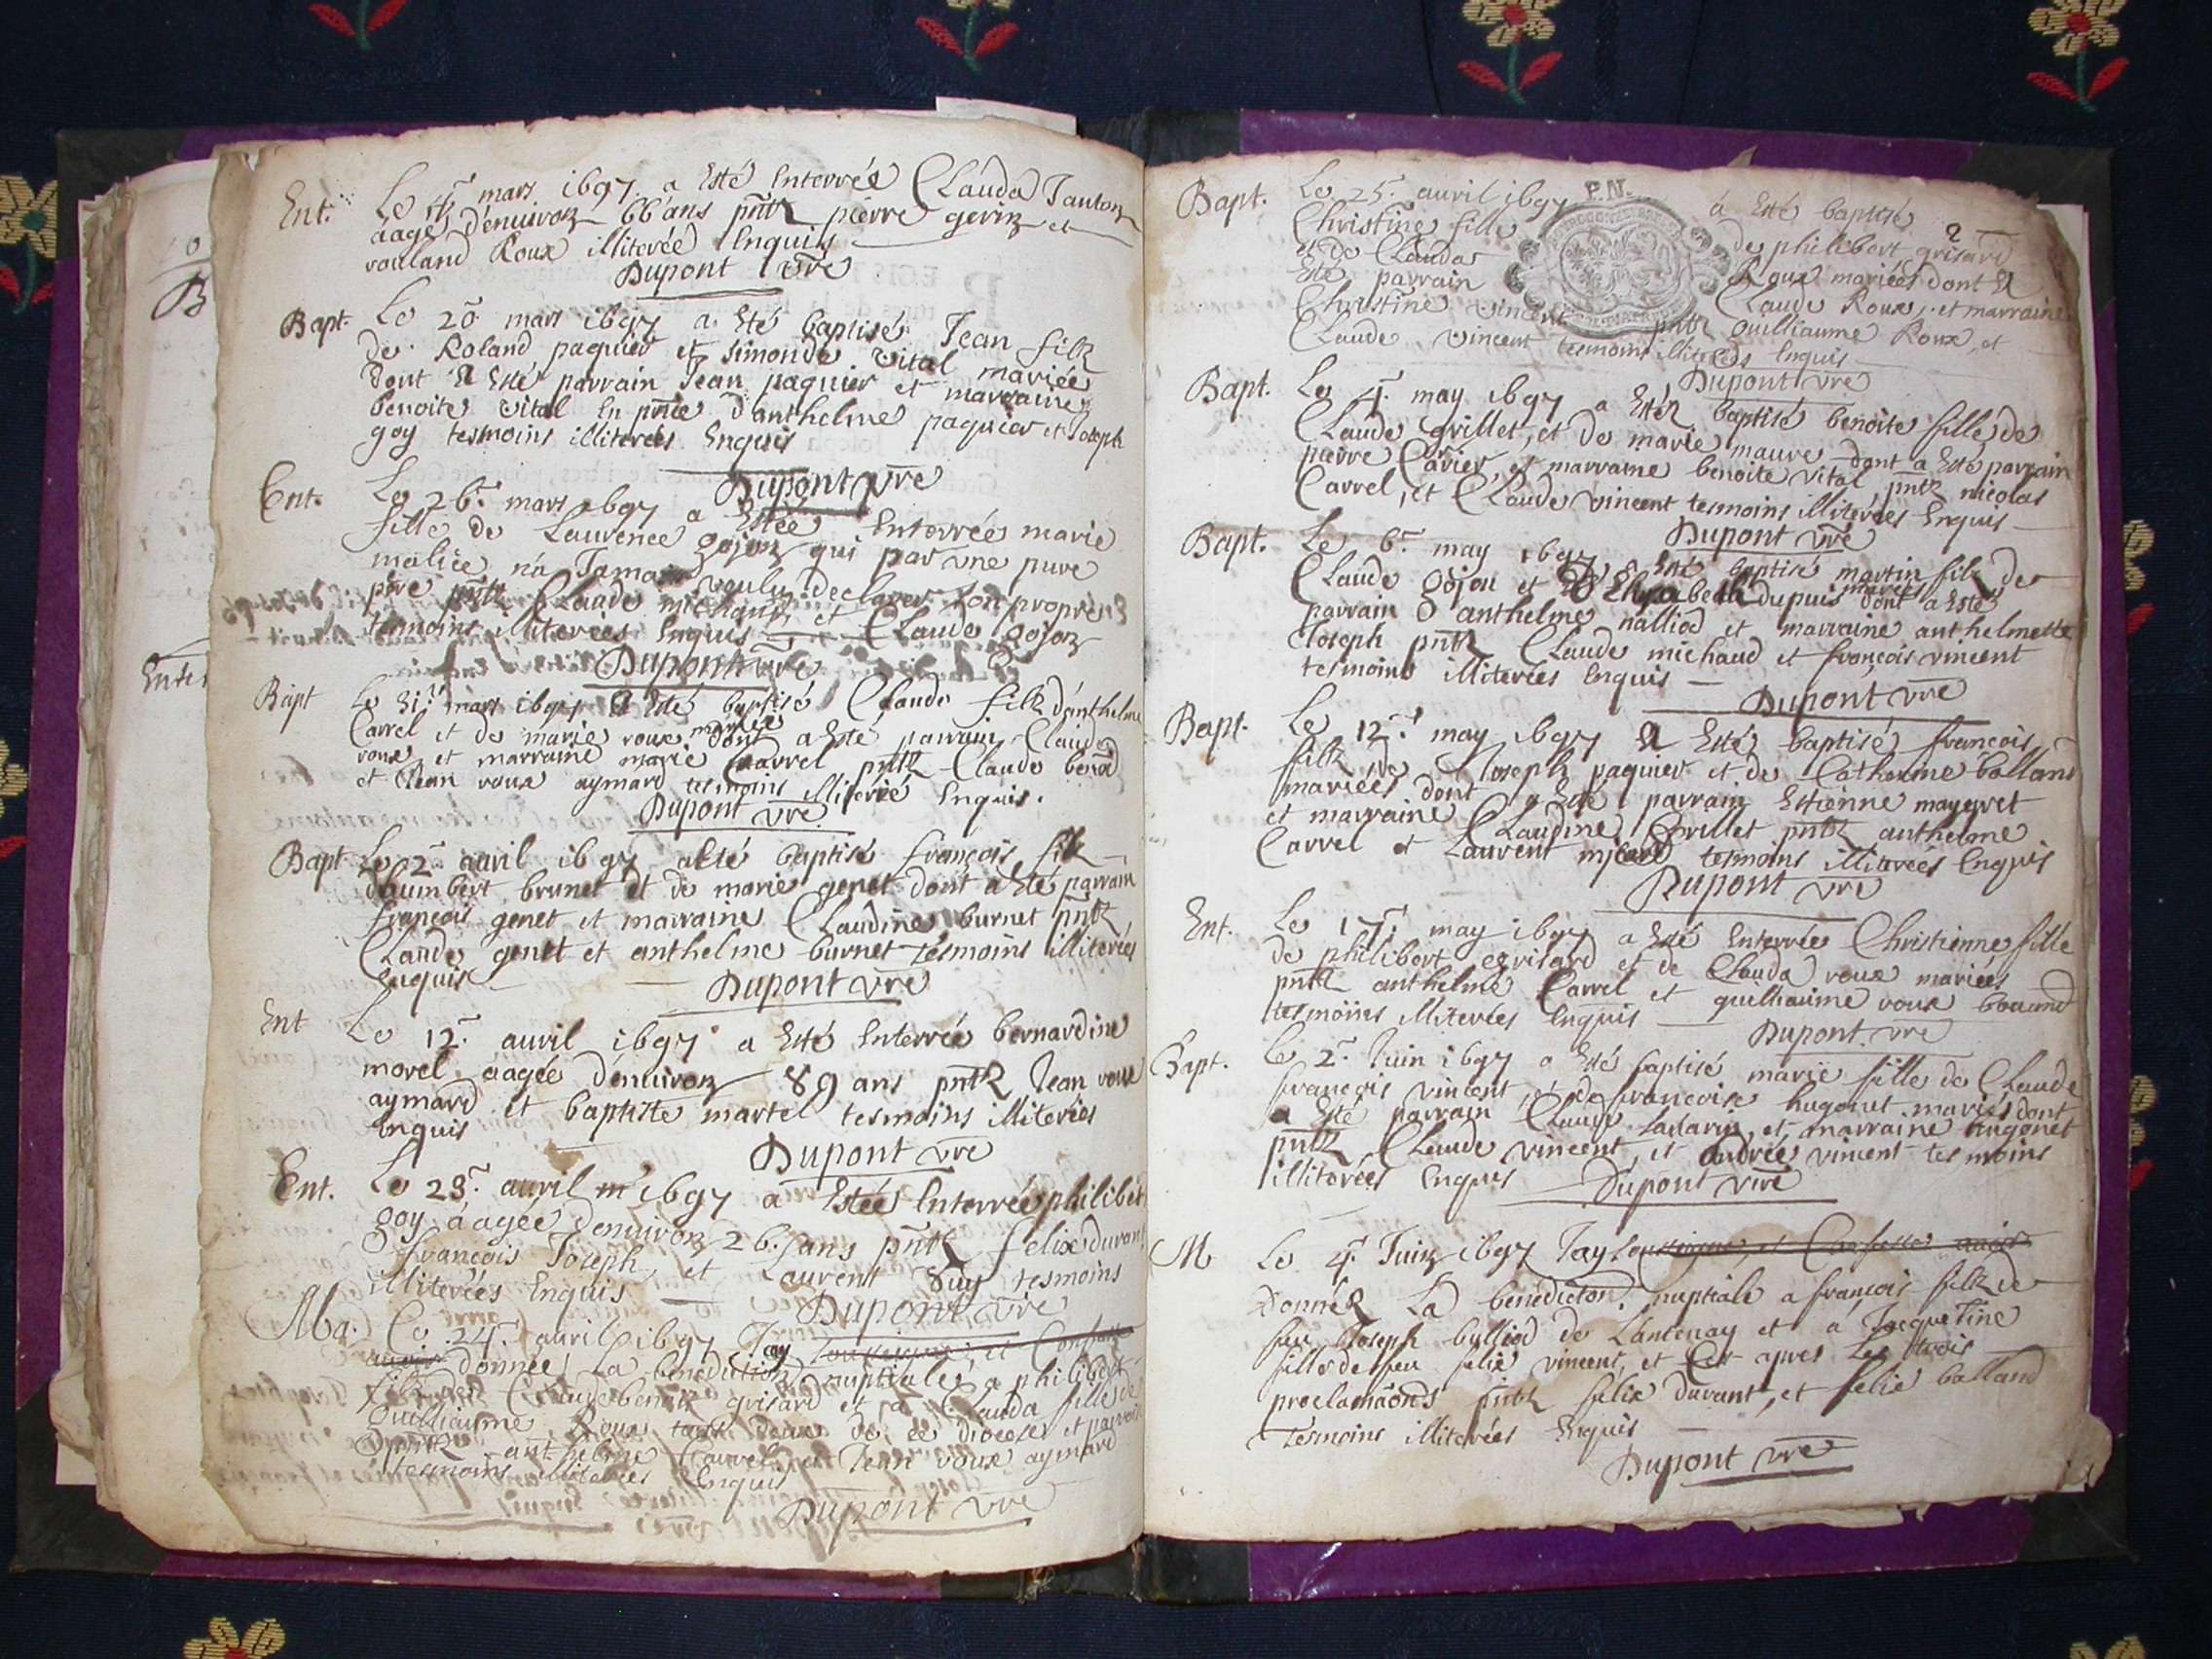 Ent. Le mars 1697 a Esté Enterrée Clauda Janton
aagé d'enuiron 66 ans pntz pierre gerin et
rouland Roux illiterée Enquis
Dupont vre
Bapt. Le 20 mars 1697 a Esté baptisé Jean filz
de Roland paquier et simonde vital mariée
dont a Esté parrain Jean paquier et marraine
benoite vital En pnce d'anthelme paquier et Joseph
goy tesmoins illiterées Enquis
Dupont vre
Ent. Le 26e mars 1697 a Estée Enterrée marie
fille de Laurence gojon qui par une pure
malice n'a Jamais voulu declarer son propre
pere pntz Claude michaud et Claude gojon
tesmoins illiterées Enquis
Dupont vre
Bapt Le 31e mars 1697 a Esté baptisé Claude filz d'anthelme
Carrel et de marie roux mariée dont a Esté parrain Claude
roux et marraine marie Carrel pntz Claude
et Jean roux aymard tesmoins illiterée Enquis.
Dupont vre
Bapt Le 2e auril 1697 a Esté baptisé françois filz
d'humbert brunet et de marie genet dont a Esté parrain
françois genet et marraine Claudine burnet pntz
Claude genet et anthelme burnet tesmoins illiterées
Enquis
Dupont vre
Ent Le 12e auril 1697 a Esté Enterrée bernardine
morel aagée d'enuiron 89 ans pntz Jean roux
aymard et baptiste martel tesmoins illiterées
Enquis
Dupont vre
Ent. Le 23e auril 1697 a Estée Enterrée philibert
goy aagée d'enuiron 26 ans pntz felix durant
françois Joseph et Laurent tesmoins
illiterées Enquis
Dupont vre
Ma. Le 24e auril 1697 Jay et
donnée La benediction nuptiale a philibert
filz de Claude benoit grisard et a Clauda fille de
Guilliaume Roux tous deux de ce diocese et parroisse
pntz anthelme Carrel et Jean roux aymard
tesmoins illiterées Enquis
Dupont vre
Bapt. Le 25e auril 1697 P.N. a Esté baptisé
2
Christine fille de philibert grisard
et de Clauda Roux mariées dont a
Esté parrain Claude Roux, et marraine
Christine vincent pntz Guilliaume Roux, et
Claude vincent tesmoins illiterées Enquis
Dupont vre
Bapt. Le 4e may 1697 a Esté baptisé benoite fille de
Claude grillet, et de marie maure dont a Esté parrain
pierre Carier, et marraine benoite vital, pntz nicolas
Carrel, et Claude vincent tesmoins illiterées Enquis
Dupont vre
Bapt. Le 6e may 1697 a Esté baptisé martin filz de
Claude gojon et Elizabeth dupuis mariés dont a Esté
parrain anthelme nalliod et marraine anthelmette
Joseph pntz Claude michaud et françois vincent
tesmoins illiterées Enquis
Dupont vre
Bapt. Le 12e may 1697 a Esté baptisé françois
filz de Joseph paquier et de Catherine balland
mariées dont a Esté parrain Estienne maygret
et marraine Claudine Grillet pntz anthelme
Carrel et Laurent tesmoins illiterées Enquis
Dupont vre
Ent. Le 17e may 1697 a Esté Enterrée Christienne fille
de philibert grisard et de Clauda roux mariées
pntz anthelme Carrel et guilliaume roux
tesmoins illiterées Enquis
Dupont vre
Bapt. Le 2e Juin 1697 a Esté baptisé marie fille de Claude
françois vincent, et de françoise hugonet mariés dont
a Esté parrain Claude et marraine hugonet
pntz Claude vincent, et andrée vincent tesmoins
illiterées Enquis Dupont vre
M Le 4e Juin 1697 Jay et
Donnée La benediction nuptiale a françois filz de
feu Joseph bulliod de Lantenay et a Jacquetine
fille de feu felix vincent, et apres Les trois
proclamaons pntz felix durant, et felix balland
Tesmoins illiterées Enquis
Dupont vre